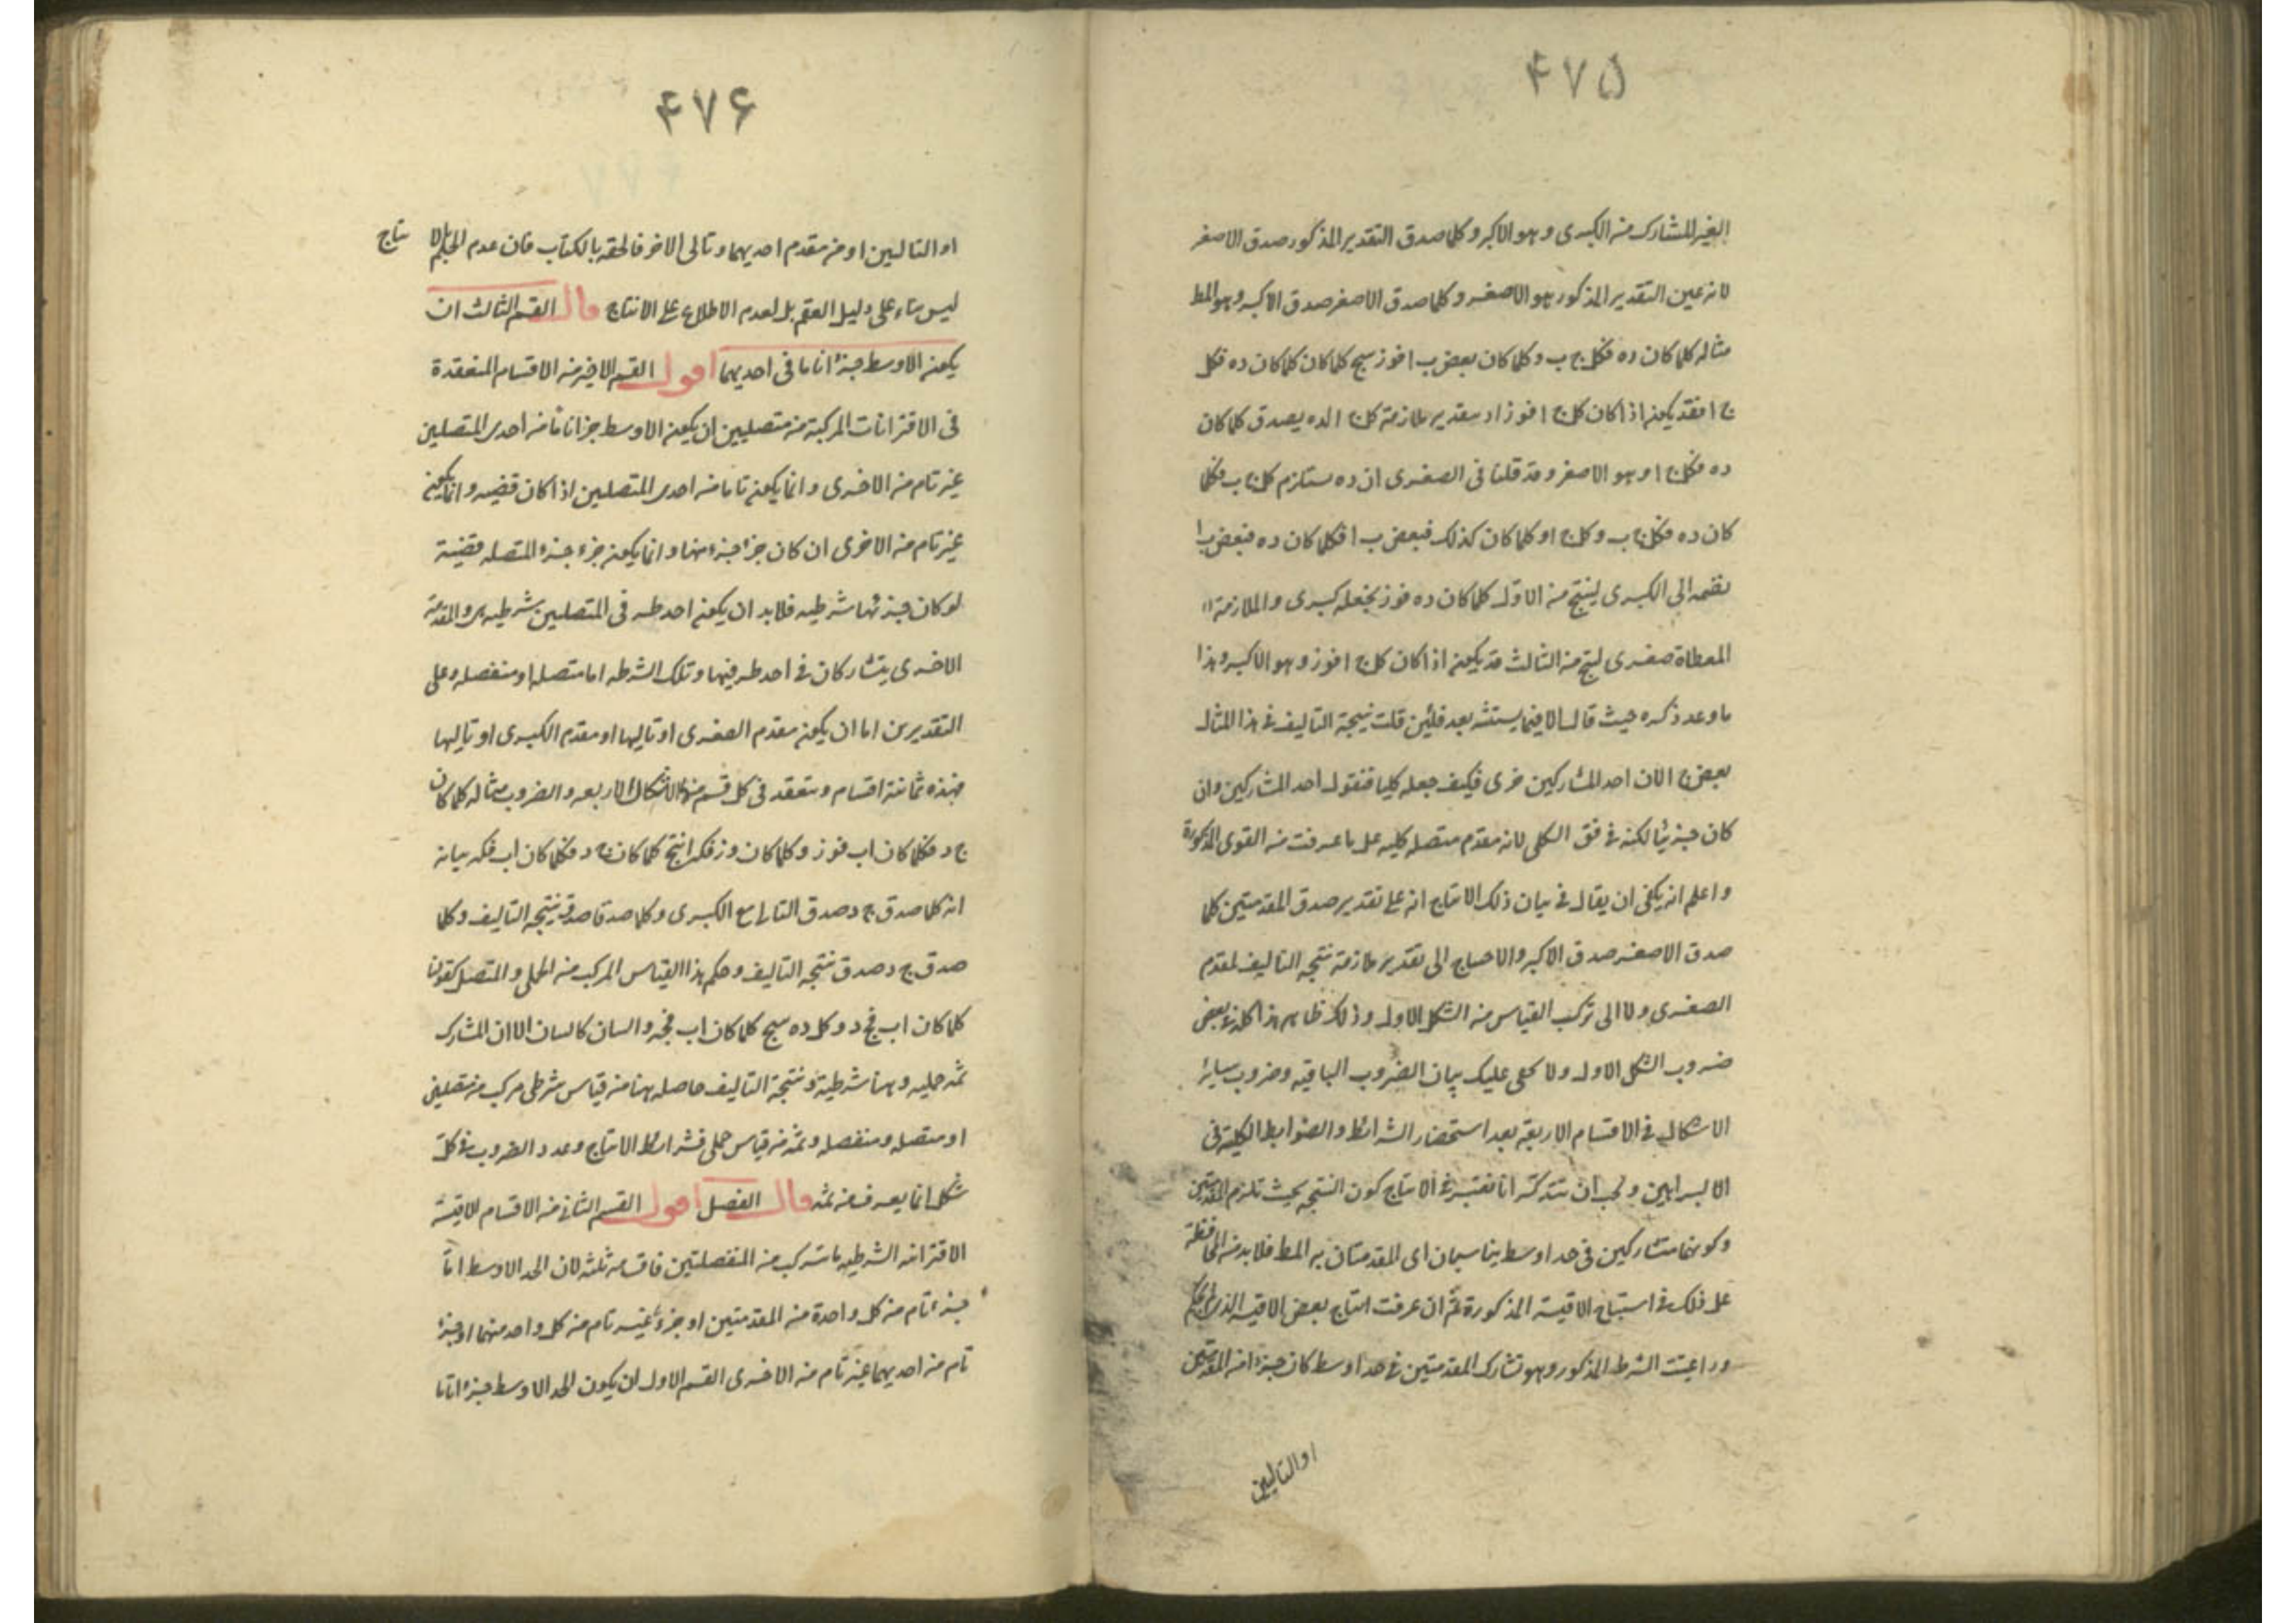 ۴۷۵
الغير المشارك من الكبرى وهو الاكبر وكلما صدق التقدير المذكور صدق الاصغر
لانه عين التقدير المذكور هو الاصغر وكلما صدق الاصغر صدق الاكبر وهو المط
مثاله كلما كان ده فكل ج ب وكلما كان بعض ب ا فوز ينتج كلما كان كلما كان ده فكل
ج ا فقد يكون اذا كان كل ج ا فوز اد بتقدير ملازمة كل ج ا لده يصدق كلما كان
ده فكل ج ا وهو الاصغر وقد قلنا فى الصغرى ان ده يستلزم كل ج ب فكلما
كان ده فكل ج ب وكل ج ا وكلما كان كذلك فبعض ب ا فكلما كان ده فبعض ب ا
نضمه الى الكبرى لينتج من الاول كلما كان ده فوز نجعله كبرى والملازمة
المعطاة صغرى لينتج من الثالث قد يكون اذا كان كل ج ا فوز وهو الاكبر وهذا
ما وعد ذكره حيث قال الا فيما يستثنيه بعد فلئن قلت نتيجة التاليف فى هذا المثال
بعض ج ا لان احد المشاركين جزى فكيف جعله كليا فنقول احد المشاركين وان
كان جزئيا لكنه فى قوة الكلى لانه مقدم متصله كليه على ما عرفت من القوى المذكورة
واعلم انه يكفى ان يقال فى بيان ذلك الانتاج انه على تقدير صدق المقدمتين كلما
صدق الاصغر صدق الاكبر والاحتياج الى تقدير ملازمة نتيجه التاليف لمقدم
الصغرى ولا الى تركب القياس من الشكل الاول وذلك ظاهر هذا كله فى بعض
ضروب الشكل الاول ولا يخفى عليك بيان الضروب الباقيه وضروب ساير
الاشكال فى الاقسام الاربعة بعد استحضار الشرائط والضوابط الكلية فى
الا لبراهين ويجب ان تتذكر انا نعتبر فى الانتاج كون النتيجه بحيث تلزم المقدمتين
وكونهما متشاركين فى حد اوسط يناسبان اى المقدمتان به المط فلا بد من المحافظة
على ذلك فى استنتاج الاقيسة المذكورة ثم ان عرفت انتاج بعض الاقيسه الذى
وراعيت الشرط المذكور وهو تشارك المقدمتين فى حد اوسط كان جزءا من المقدمتين
او التاليين
۴۷۶
او التاليين او من مقدم احديهما وتالى الاخر فالحقه بالكتاب فان عدم الحكم بالانتاج
ليس بناء على دليل العقم بل لعدم الاطلاع على الانتاج قال القسم الثالث ان
يكون الاوسط جزءا تاما فى احديهما اقول القسم الاخير من الاقسام المنعقدة
فى الاقترانات المركبة من متصليين ان يكون الاوسط جزءا تاما من احدى المتصلين
غير تام من الاخرى وانما يكون تاما من احدى المتصلين اذا كان قضيه وانما يكون
غير تام من الاخرى ان كان جزء جزء منها وانما يكون جزء جزء المتصله قضية
لو كان جزئها شرطيه فلا بد ان يكون احد طرفى المتصلين شرطيه هى والمقدمة
الاخرى يتشاركان فى احد طرفيها وتلك الشرطيه اما متصله او منفصله وعلى
التقديرين اما ان يكون مقدم الصغرى او تاليها او مقدم الكبرى او تاليها
فهذه ثمانية اقسام وينعقد فى كل قسم منها الاشكال الاربعه والضروب مثاله كلما كان
ج د فكلما كان اب فوز وكلما كان وز فكه انتج كلما كان ج د فكلما كان اب فكه بيانه
انه كلما صدق ج د صدق التالى مع الكبرى وكلما صدقا صدق نتيجه التاليف وكلما
صدق ج د صدق نتيجه التاليف وحكم هذا القياس المركب من الحملى والمتصل كقولنا
كلما كان اب فج د وكل ده ينتج كلما كان اب فجه والبيان كالبيان الا ان المشارك
ثمه حمليه وهنا شرطية ونتيجة التاليف حاصله هنا من قياس شرطى مركب من متصلين
او متصله ومنفصله وثمه من قياس حملى فشرائط الانتاج وعدد الضروب فى كل
شكل انما يعرف من ثمه قال الفصل اقول القسم الثانى من الاقسام الاقيسة
الاقترانيه الشرطيه ما تركب من المنفصلتين فاقسامه ثلثه لان الحد الاوسط اما
جزء تام من كل واحدة من المقدمتين او جزء غير تام من كل واحد منهما او جزء
تام من احديهما غير تام من الاخرى القسم الاول ان يكون الحد الاوسط جزءا تاما